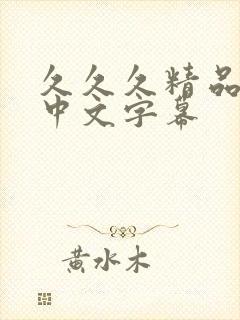 久久久精品
中文字幕
黄水木